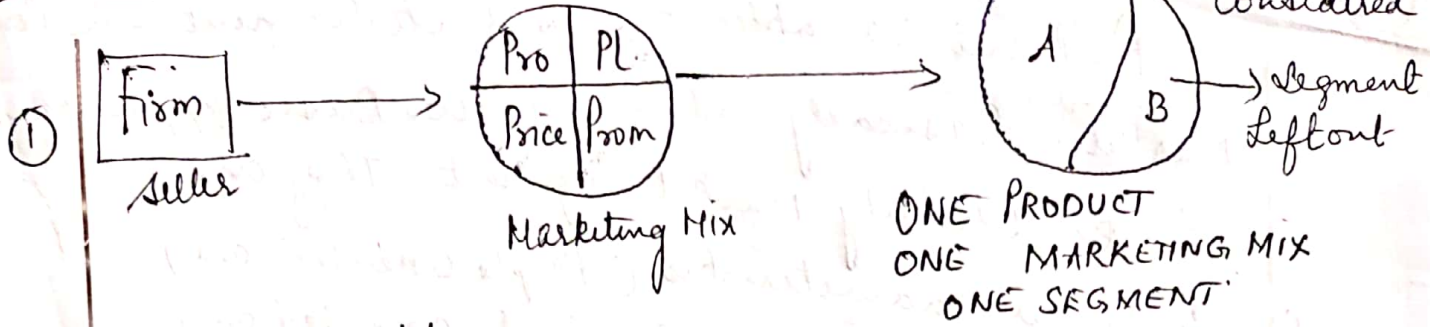 ①
Firm
Seller
Pro
Pl.
Price
Prom
Marketing Mix
A
B
Segment
Leftout
ONE PRODUCT
ONE MARKETING MIX
ONE SEGMENT